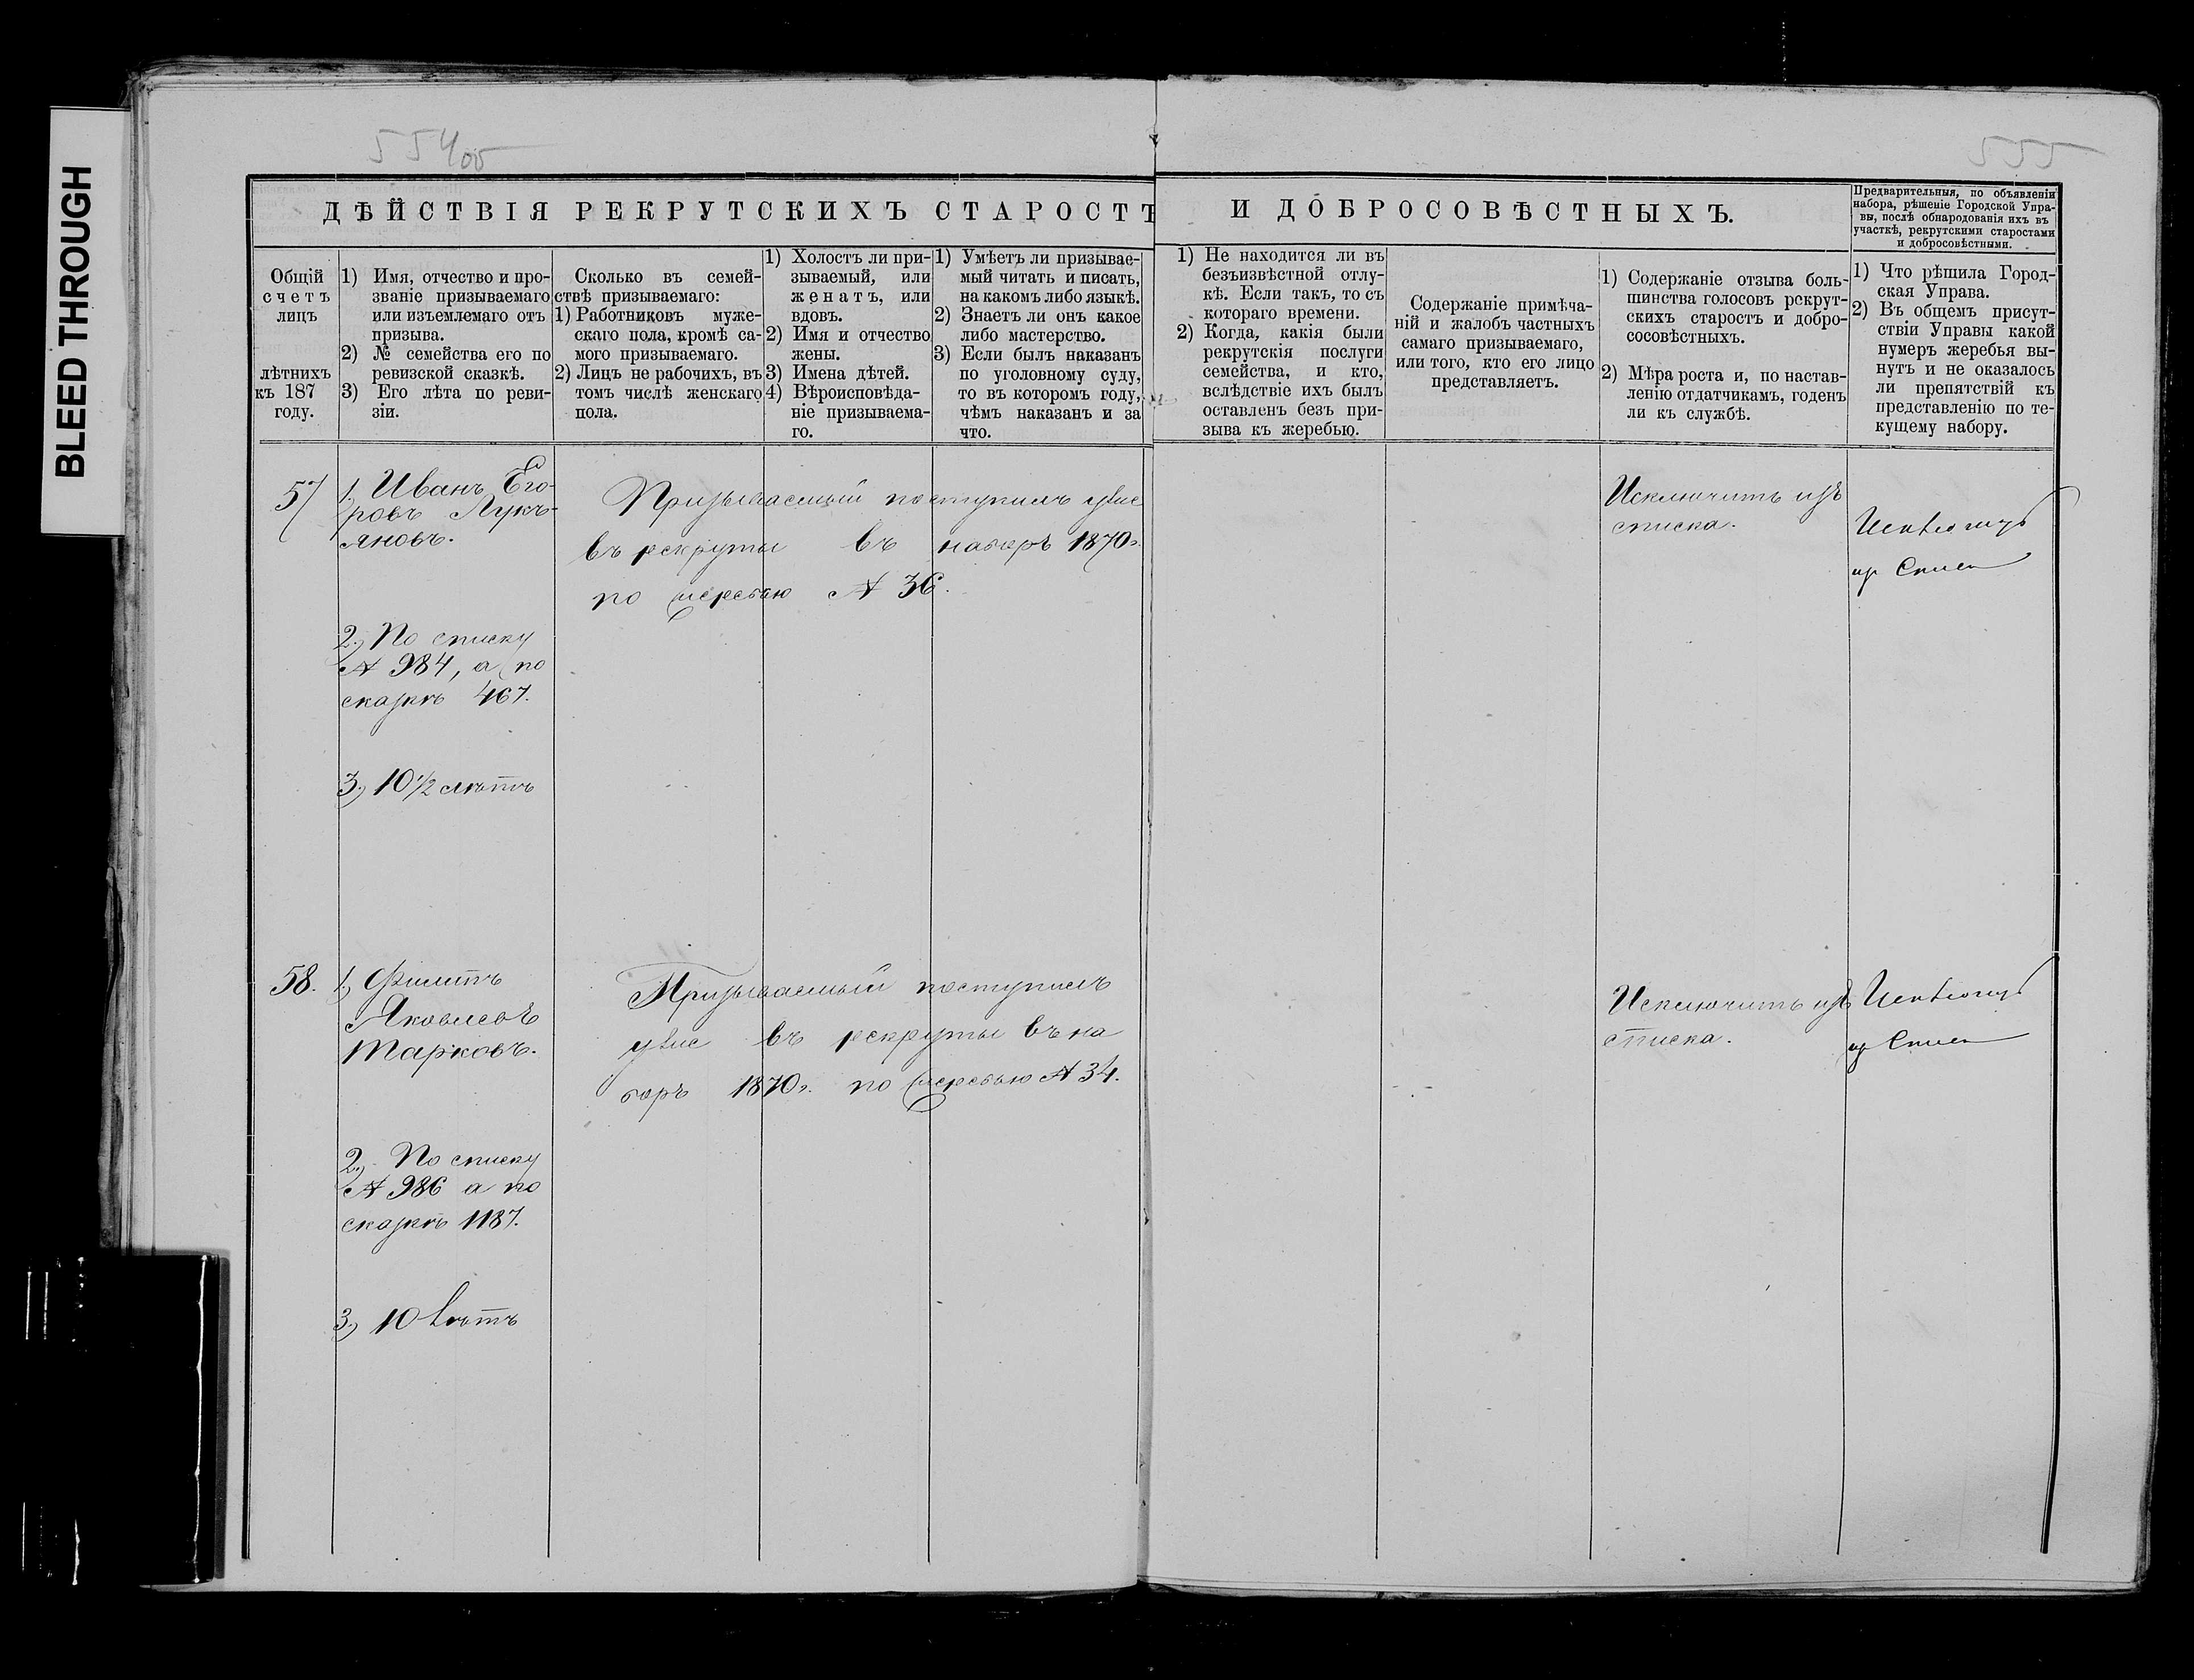 BLEED THROUGH
554об
555
ДѢЙСТВІЯ РЕКРУТСКИХЪ СТАРОСТЪ И ДОБРОСОВѢСТНЫХЪ.
Предварительныя, по объявленіи
набора, рѣшеніе Городской Упра-
вы, послѣ обнародованія ихъ въ
участкѣ, рекрутскими старостами
и добросовѣстными.
Общій
счетъ
лицъ
лѣтнихъ
къ 187
году.
1) Имя, отчество и про-
званіе призываемаго
или изъемлемаго отъ
призыва.
2) № семейства его по
ревизской сказкѣ.
3) Его лѣта по реви-
зіи.
Сколько въ семей-
ствѣ призываемаго:
1) Работниковъ муже-
скаго пола, кромѣ са-
мого призываемаго.
2) Лицъ не рабочихъ, въ
томъ числѣ женскаго
пола.
1) Холостъ ли при-
зываемый, или
женатъ, или
вдовъ.
2) Имя и отчество
жены.
3) Имена дѣтей.
4) Вѣроисповѣда-
ніе призываема-
го.
1) Умѣетъ ли призывае-
мый читать и писать,
на какомъ либо языкѣ.
2) Знаетъ ли онъ какое
либо мастерство.
3) Если былъ наказанъ
по уголовному суду,
то въ которомъ году,
чѣмъ наказанъ и за
что.
1) Не находится ли въ
безъизвѣстной отлу-
кѣ. Если такъ, то съ
котораго времени.
2) Когда, какія были
рекрутскія послуги
семейства, и кто,
вслѣдствіе ихъ былъ
оставленъ безъ при-
зыва къ жеребью.
Содержаніе примѣча-
ній и жалобъ частныхъ
самаго призываемаго,
или того, кто его лицо
представляетъ.
1) Содержаніе отзыва боль-
шинства голосовъ рекрут-
скихъ старостъ и добро-
сосовѣстныхъ.
2) Мѣра роста и, по настав-
ленію отдатчикамъ, годенъ
ли къ службѣ.
1) Что рѣшила Город-
ская Управа.
2) Въ общемъ присут-
ствіи Управы какой
нумеръ жеребья вы-
нутъ и не оказалось
ли препятствій къ
представленію по те-
кущему набору.
57
1, Иванъ Его-
ровъ Лукъ-
яновъ.
2, По списку
№ 984, а по
сказкѣ 467.
3, 10 1/2 лѣтъ
Призываемый поступилъ уже
въ рекруты въ наборъ 1870г.
по жеребью № 36.
Исключить изъ
списка.
58.
1, Филипъ
Яковлевъ
Марковъ.
2, По списку
№ 986 а по
сказкѣ 1187.
3, 10 лѣтъ
Призываемый поступилъ
уже въ рекруты въ на
боръ 1870г. по жеребью № 34.
Исключить изъ
списка.